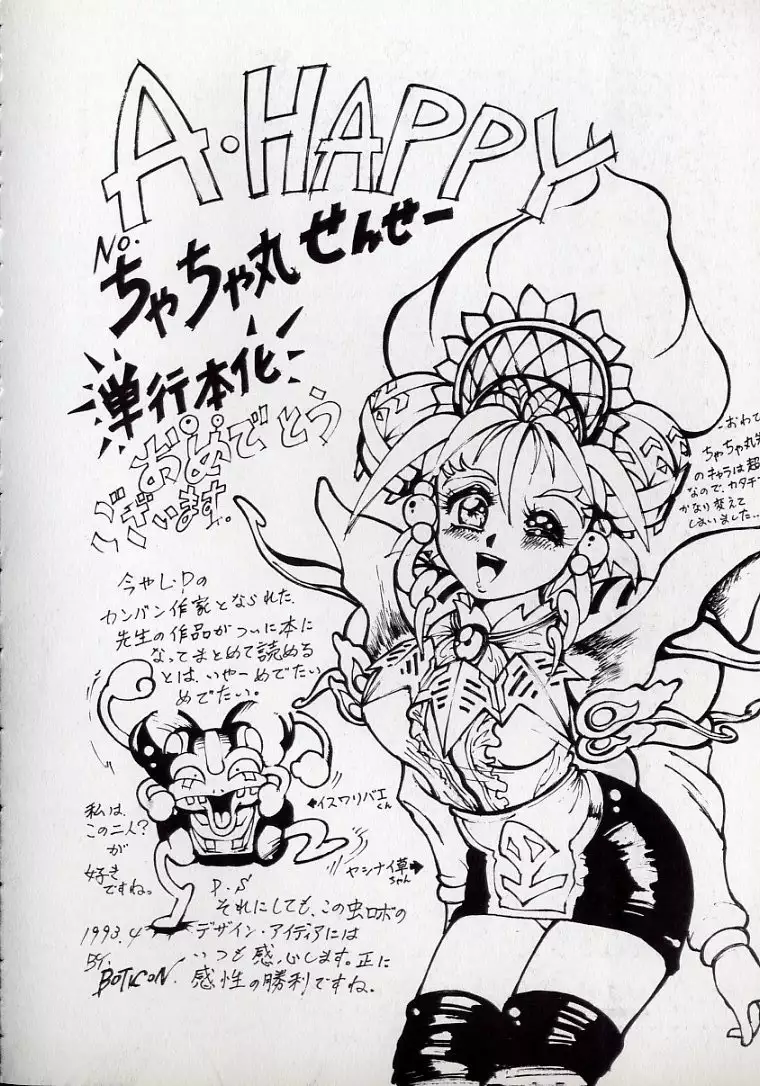 A・HAPPY
No.
ちゃちゃ丸せんせー
単行本化
おめでとう
ございます。
今やL・Pの
カンバン作家となられた
先生の作品がついに本に
なってまとめて読める
とは、いやーめでたい
めでたい。
私は、
この二人?
が
好き
ですね。
←イスワリバエくん
ヤシナイ草ちゃん→
おわて
ちゃちゃ丸先
のキャラは超
なので、カタチ
かなり変えて
しまいました..
P.S
それにしても、この虫ロボの
デザイン・アイディアには
いつも感心します。正に
感性の勝利ですね.
1993.4
BY.
BOTICON.